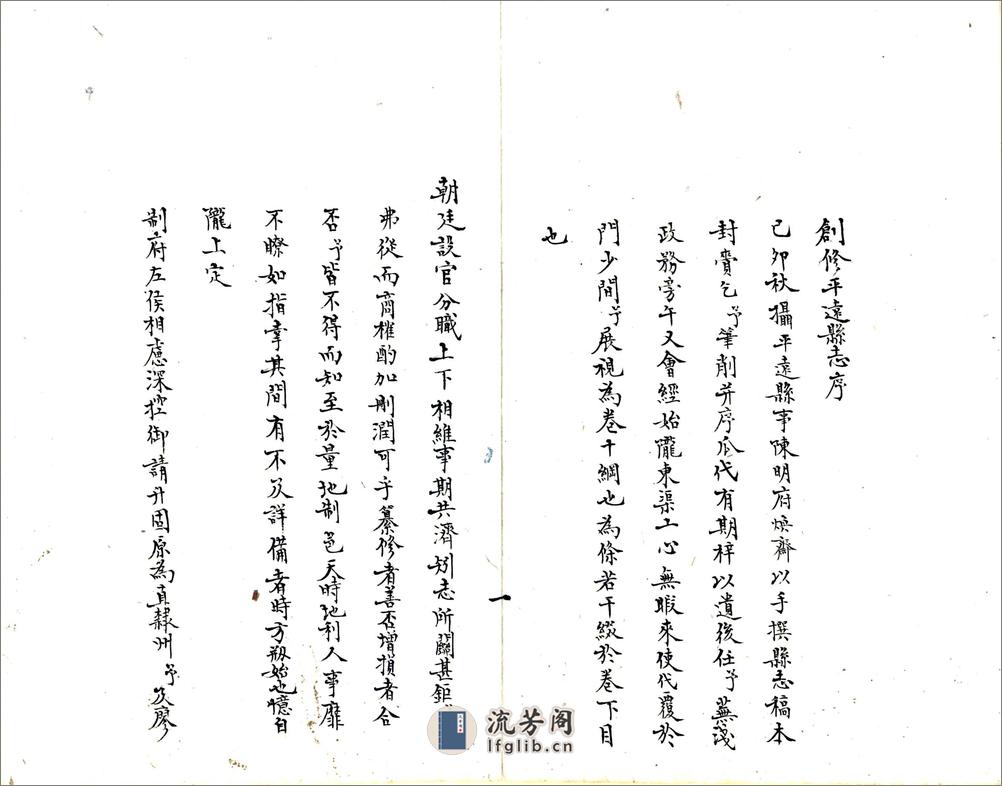 創修平遠縣志序
己卯秋攝平遠縣事陳明府煥齋以手撰縣志稿本
封賫乞予筆削并序瓜代有期梓以遺後任予蕪淺
政務旁午又會經始隴東渠工心無暇來使代覆於
門少間予展視為卷十綱也為條若干綴於卷下目
也
朝廷設官分職上下相維事期共濟矧志所關甚鉅
弗從而商榷酌加刪潤可乎纂修者善否增損者合
否予皆不得而知至於量地制邑天時地利人事靡
不瞭如指掌其間有不及詳備者時方剏始也憶自
隴上定
制府左侯相慮深控御請升固原為直隸州予及廖
一
流芳阁
lfglib.cn